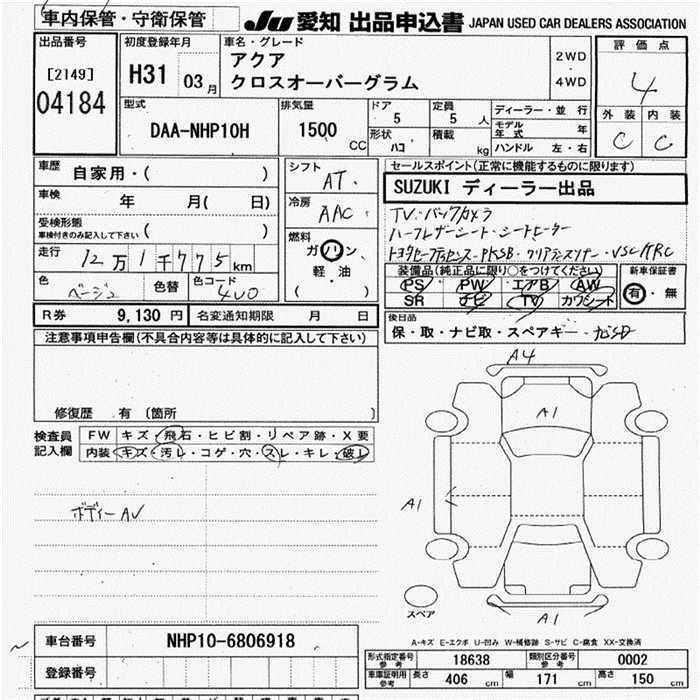 車内保管・守衛保管
JU 愛知 出品申込書 JAPAN USED CAR DEALERS ASSOCIATION
出品番号
[2149]
04184
初度登録年月
H31 03月
車名・グレード
アクア
クロスオーバーグラム
2WD
・
4WD
評価点
4
外装 内装
C C
型式
DAA-NHP10H
排気量
1500 CC
ドア 5
定員 5 人
形状 ハコ
積載 kg
ディーラー・並行
モデル年式 年
ハンドル 左・右
車歴 自家用・( )
車検 年 月( 日)
受検形態
車検付きのみ記入して下さい ( )
走行 12万1千775km
色 ベージュ 色替 色コード 4U0
シフト AT
冷房 AAC
燃料
ガソリン
軽・油
( )
セールスポイント(正常に機能するものに限ります)
SUZUKI ディーラー出品
TV・バックカメラ
ハーフレザーシート・シートヒーター
トヨタセーフティセンス・PKSB・クリアランスソナー・VSC/TRC
装備品(純正品に限り○をつけてください)
PS PW エアB AW
SR ナビ TV カワシート
新車保証書
有・無
後日品
保・取・ナビ取・スペアキー・
R券 9,130円 名変通知期限 月 日
注意事項申告欄(不具合内容等は具体的に記入して下さい)
修復歴 有 〔箇所 〕
検査員記入欄
FW キズ・飛石・ヒビ割・リペア跡・X要
内装 キズ・汚レ・コゲ・穴・スレ・キレ・破レ
ボディーAU
A4
A1
A1
A1
スペア
A-キズ E-エクボ U-凹み W-補修跡 S-サビ C-腐食 XX-交換済
車台番号 NHP10-6806918
登録番号
形式指定番号 参考 18638 類別区分番号 参考 0002
車庫証明用 参考 長さ 406 cm 幅 171 cm 高さ 150 cm